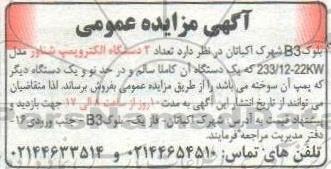 آگهی مزایده عمومی
بلوک B3 شهرک اکباتان در نظر دارد تعداد ۲ دستگاه الکتروپمپ شناور مدل
233/12-22KW که یک دستگاه آن کاملا سالم و در حد نو و یک دستگاه دیگر
که پمپ آن سوخته می باشد را از طریق مزایده عمومی بفروش برساند. لذا متقاضیان
می توانند از تاریخ انتشار این آگهی به مدت ۱۰ روز از ساعت ۸ الی ۱۷ جهت بازدید و
پیشنهاد قیمت به آدرس: شهرک اکباتان - فاز یک - بلوک B3 - جنب ورودی ۱۶-
دفتر مدیریت مراجعه فرمایند.
تلفن های تماس: ۰۲۱۴۴۶۵۴۵۱۰ و ۰۲۱۴۴۶۳۳۵۱۴